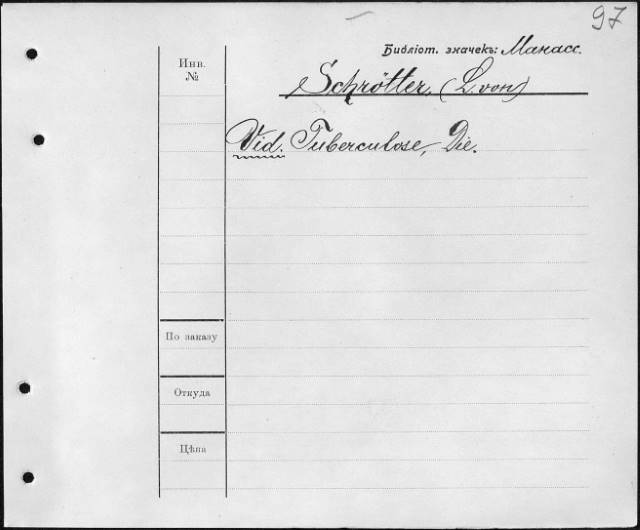 97
Библіот. значекъ: Манасс.
Инв.
№
Schrötter, (L. von)
Vid. Tuberculose, Die.
По заказу
Откуда
Цѣна